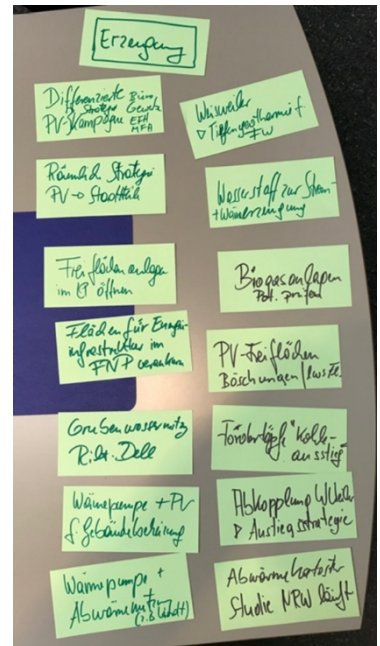 Erzeugung
Differenzierte Büro,
Strategie Gewerbe
PV-Kampagne EFH
MFA
Räumliche Strategie
PV → Stadtteile
Freiflächenanlagen
im öffnen
Flächen für Energie-
infrastruktur im
FNP verankern
Grubenwassernutz
Wärmepumpe + PV
f. Gebäudeheizung
Wärmepumpe +
Abwärmenutz
Weisweiler
Tiefengeothermie f.
FW
Wasserstoff zur Strom-
+ Wärmeerzeugung
Biogasanlagen
Pot. prüfen
PV-Freiflächen
Böschungen
Fördertöpfe "Kohle-
ausstieg"
Abkopplung WWeiler
Ausstiegsstrategie
Abwärmekataster
Studie NRW läuft